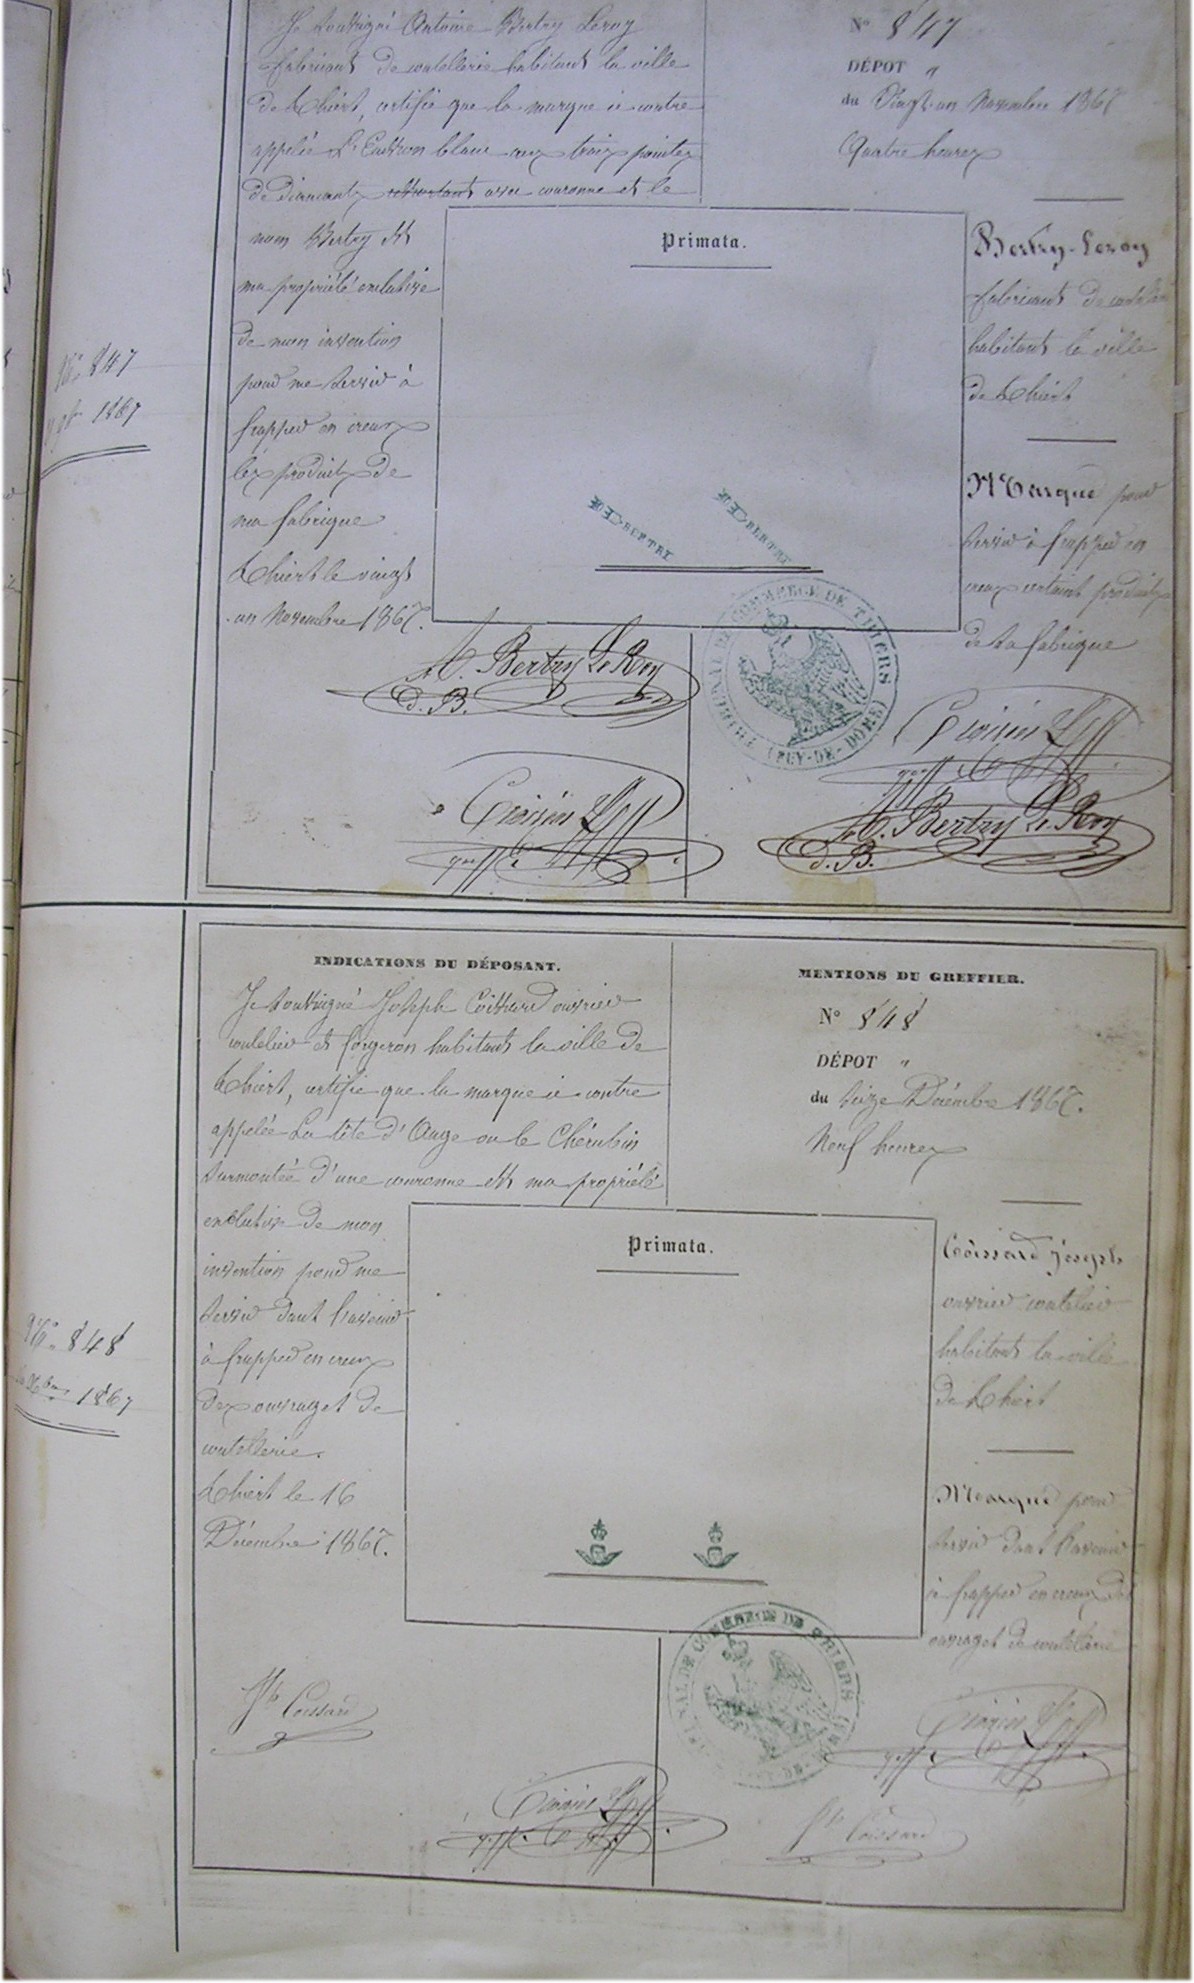 Je soussigné Antoine Bertry Leroy
fabricant de coutellerie habitant la ville
de Thiert, certifie que la marque ci contre
appelée L' blanc aux trois pointes
de diamants avec couronne et le
nom Bertry est
ma propriété exclusive
de mon invention
pour me servir à
frapper en creux
les produits de
ma fabrique
Thiert le vingt
un Novembre 1867.
A. Bertry Le Roy
d. B.
Nº 847
DÉPOT "
du Vingt-un Novembre 1867
Quatre heures
Primata.
BERTRY
BERTRY
Bertry-Leroy
fabricant de coutellerie
habitant la ville
de Thiert
Marque pour
servir à frapper en
creux certains produits
de sa fabrique
TRIBUNAL DE COMMERCE DE THIERS (PUY-DE-DÔME)
A. Bertry Le Roy
d. B.
No. 847
9bre 1867
INDICATIONS DU DÉPOSANT.
Je soussigné Joseph Coissard ouvrier
coutelier et forgeron habitant la ville de
Thiert, certifie que la marque ci contre
appelée La tête d'Ange ou le Chérubin
surmontée d'une couronne est ma propriété
exclusive de mon
invention pour me
servir dans l'avenir
à frapper en creux
des ouvrages de
coutellerie.
Thiert le 16
Décembre 1867.
Jh Coissard
MENTIONS DU GREFFIER.
Nº 848
DÉPOT "
du Seize Décembre 1867.
Neuf heures
Primata.
Coissard Joseph
ouvrier coutelier
habitant la ville
de Thiert
Marque pour
servir dans l'avenir
à frapper en creux des
ouvrages de coutellerie
TRIBUNAL DE COMMERCE DE THIERS
Jh Coissard
No. 848
1867